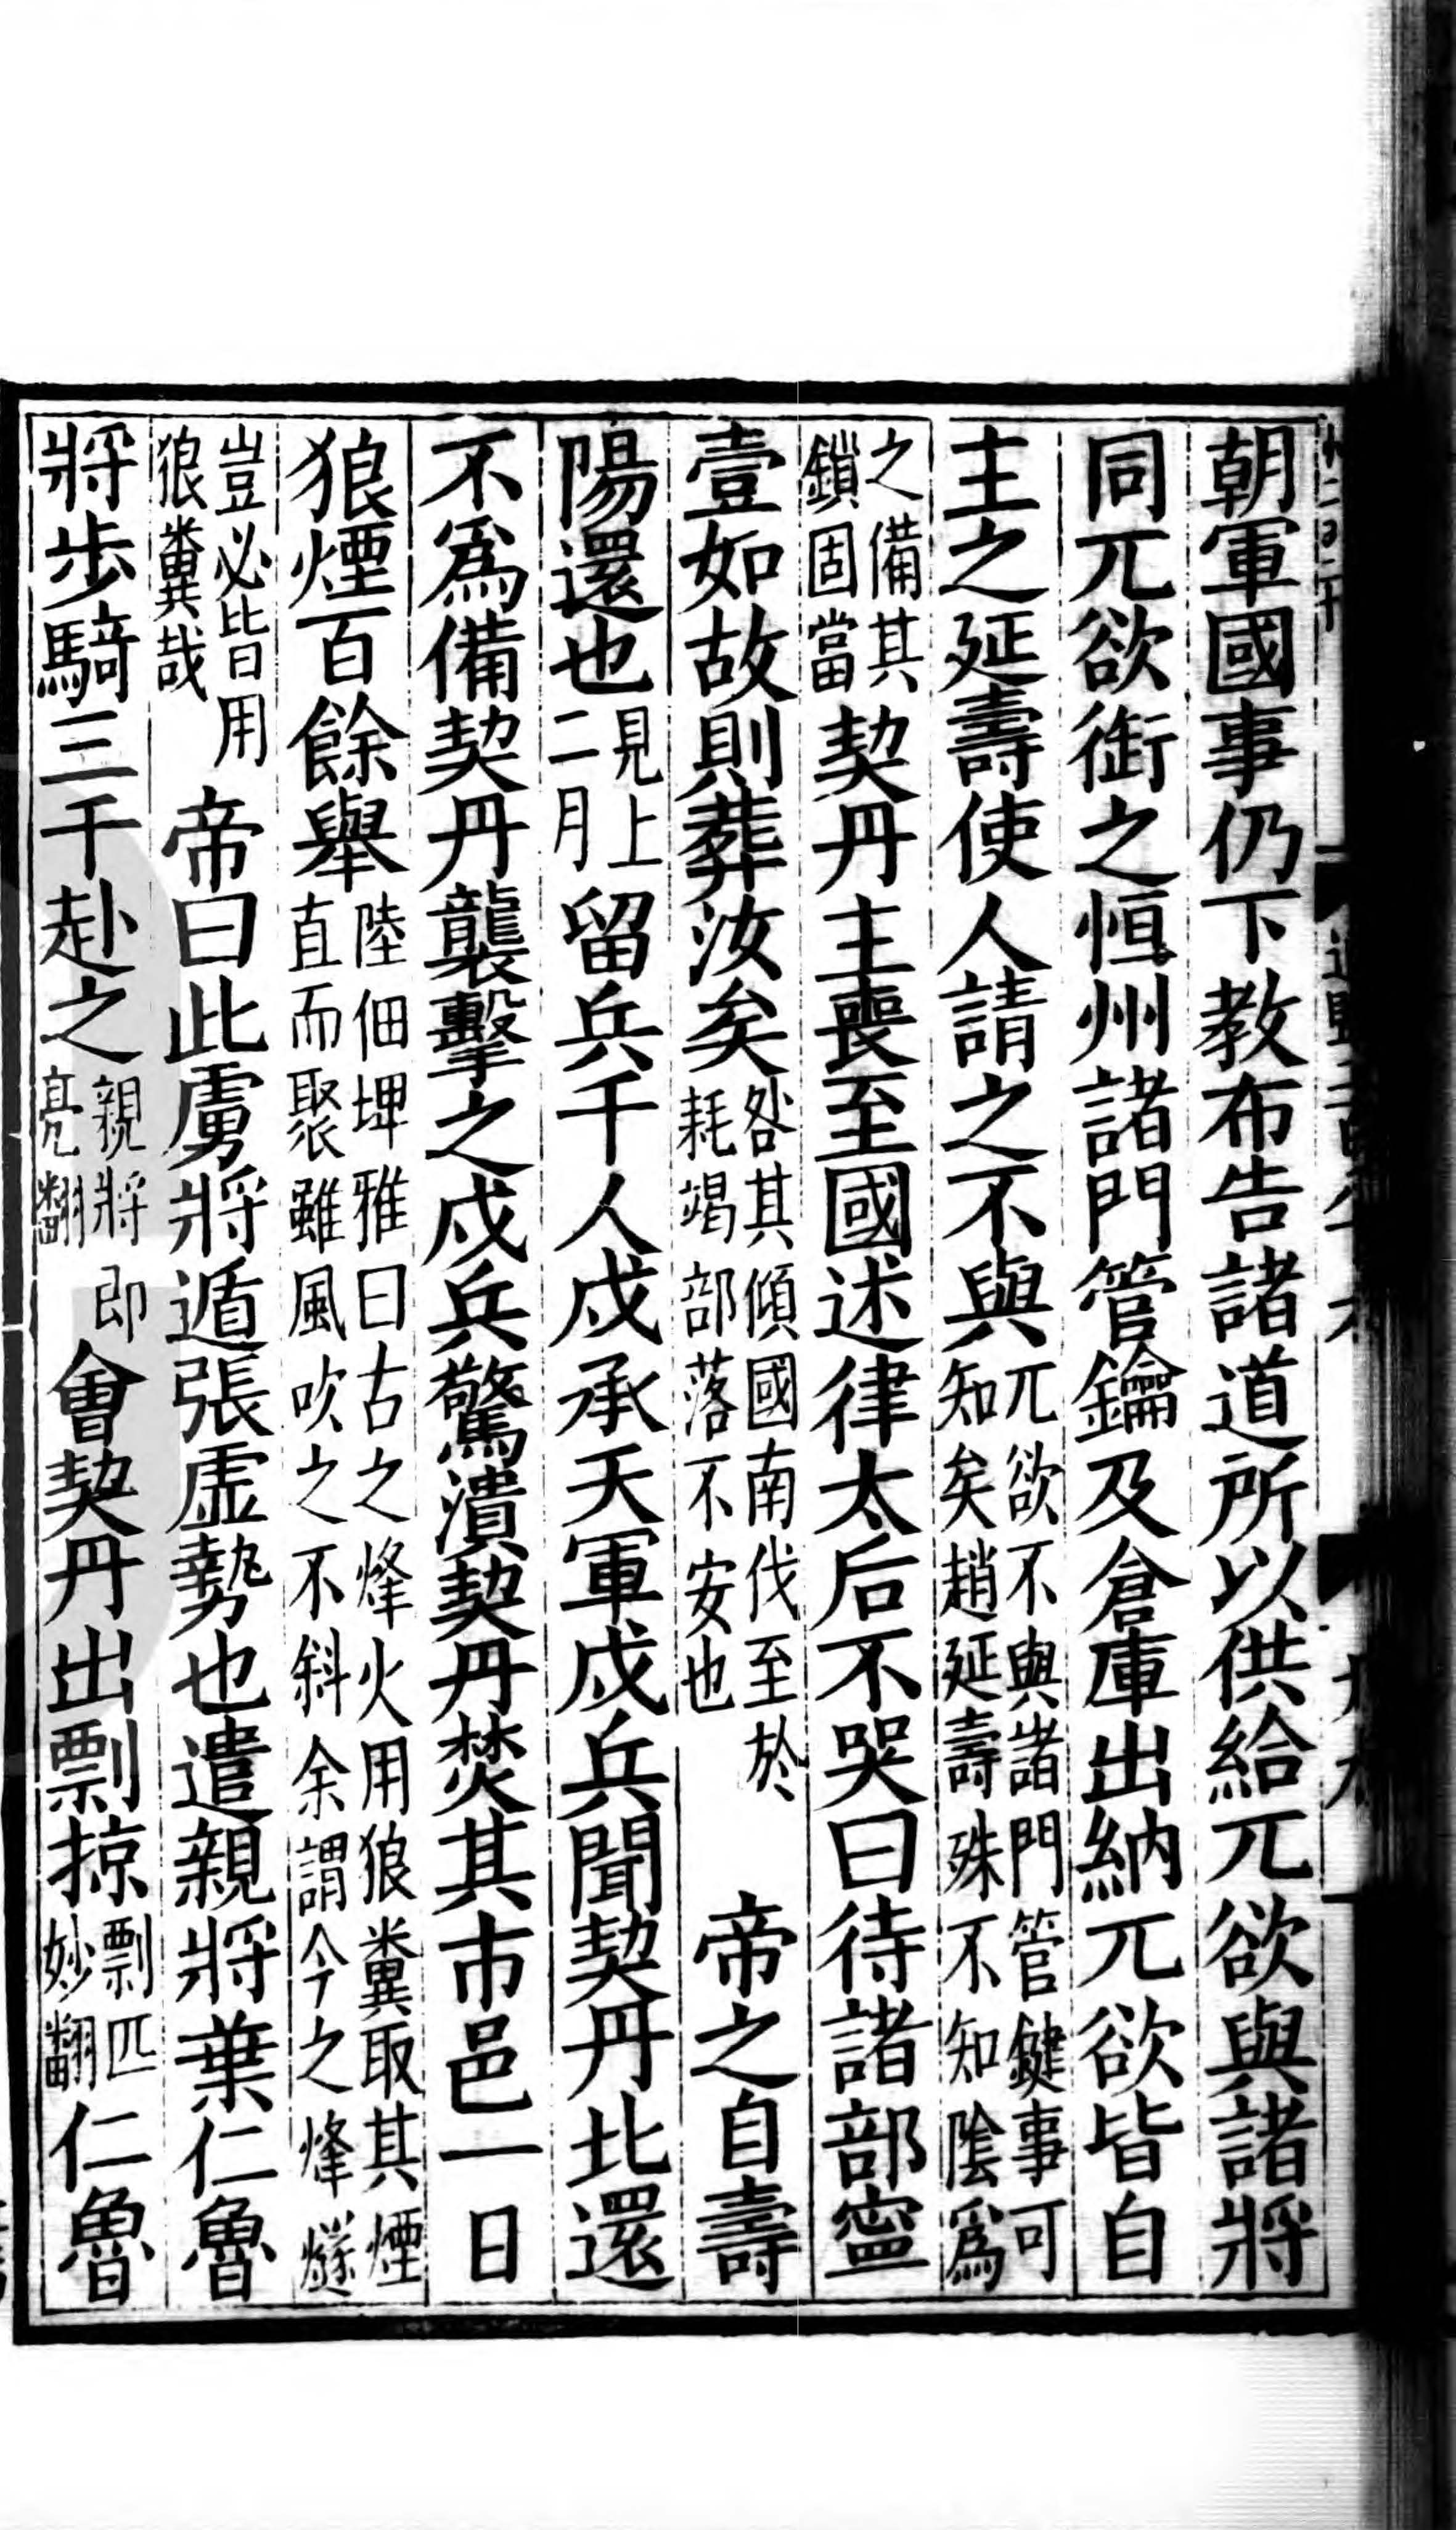 朝軍國事仍下教布告諸道所以供給兀欲與諸將
同兀欲銜之恒州諸門管鑰及倉庫出納兀欲皆自
主之延壽使人請之不與兀欲不與諸門管鍵事可知矣趙延壽殊不知陰爲
之備其鎖固當契丹主喪至國述律太后不哭曰待諸部寧
壹如故則葬汝矣咎其傾國南伐至於耗竭部落不安也帝之自壽
陽還也見上二月留兵千人戍承天軍戍兵聞契丹北還
不爲備契丹襲擊之戍兵驚潰契丹焚其市邑一日
狼煙百餘舉陸佃埤雅曰古之烽火用狼糞取其煙直而聚雖風吹之不斜余謂今之烽燧
豈必皆用狼糞哉帝曰此虜將遁張虛勢也遣親將葉仁魯
將步騎三千赴之親將即亮翻會契丹出剽掠剽匹妙翻仁魯